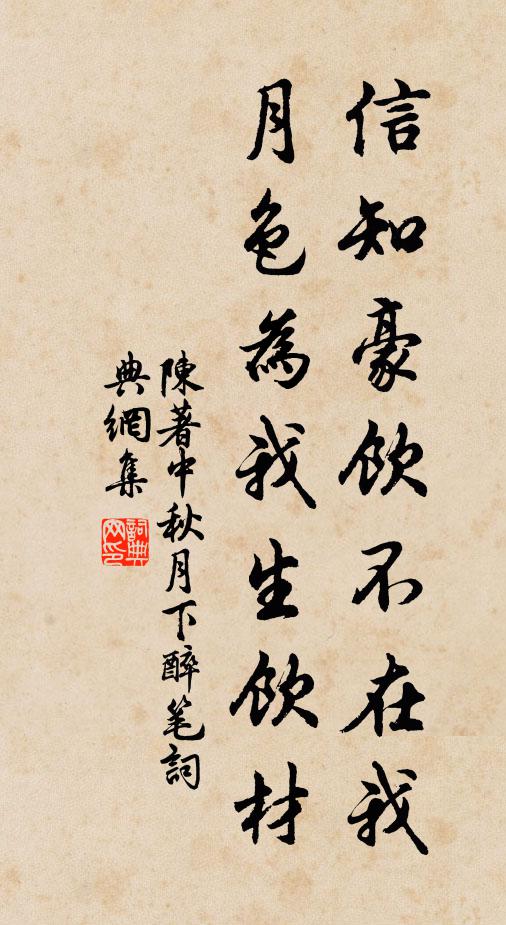 信知豪飲不在我
月色為我生飲材
陳著中秋月下醉笔詞
典網集
詞典网印